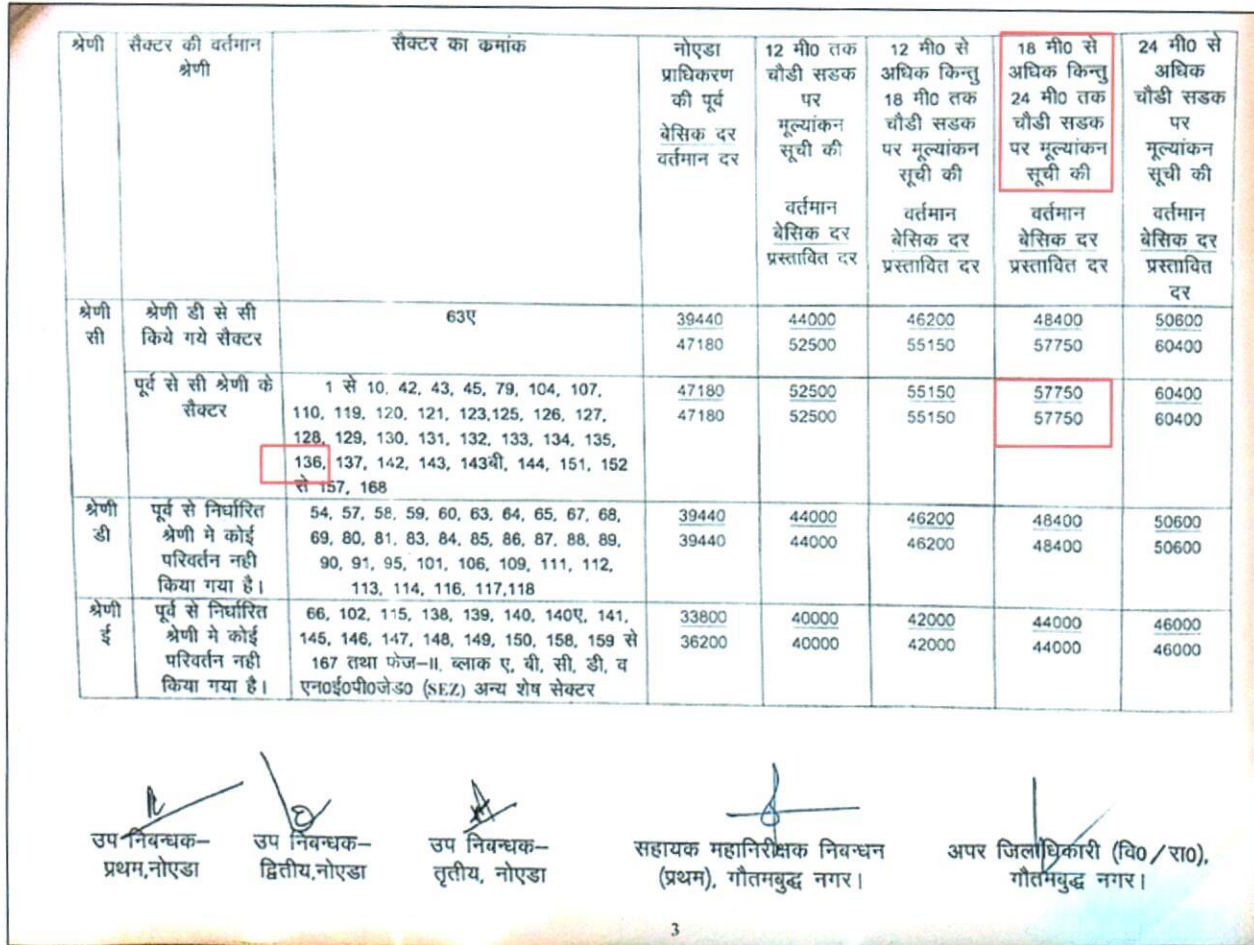 श्रेणी
सैक्टर की वर्तमान
श्रेणी
सैक्टर का कमांक
नोएडा
प्राधिकरण
की पूर्व
बेसिक दर
वर्तमान दर
12 मी0 तक
चौडी सडक
पर
मूल्यांकन
सूची की
वर्तमान
बेसिक दर
प्रस्तावित दर
12 मी0 से
अधिक किन्तु
18 मी0 तक
चौडी सडक
पर मूल्यांकन
सूची की
वर्तमान
बेसिक दर
प्रस्तावित दर
18 मी0 से
अधिक किन्तु
24 मी0 तक
चौडी सडक
पर मूल्यांकन
सूची की
वर्तमान
बेसिक दर
प्रस्तावित दर
24 मी0 से
अधिक
चौडी सडक
पर
मूल्यांकन
सूची की
वर्तमान
बेसिक दर
प्रस्तावित
दर
श्रेणी
सी
श्रेणी डी से सी
किये गये सैक्टर
63ए
39440
47180
44000
52500
46200
55150
48400
57750
50600
60400
पूर्व से सी श्रेणी के
सैक्टर
1 से 10, 42, 43, 45, 79, 104, 107,
110, 119, 120, 121, 123,125, 126, 127,
128, 129, 130, 131, 132, 133, 134, 135,
136, 137, 142, 143, 143बी, 144, 151, 152
से 157, 168
47180
47180
52500
52500
55150
55150
57750
57750
60400
60400
श्रेणी
डी
पूर्व से निर्धारित
श्रेणी मे कोई
परिवर्तन नही
किया गया है।
54, 57, 58, 59, 60, 63, 64, 65, 67, 68,
69, 80, 81, 83, 84, 85, 86, 87, 88, 89,
90, 91, 95, 101, 106, 109, 111, 112,
113, 114, 116, 117,118
39440
39440
44000
44000
46200
46200
48400
48400
50600
50600
श्रेणी
ई
पूर्व से निर्धारित
श्रेणी मे कोई
परिवर्तन नही
किया गया है।
66, 102, 115, 138, 139, 140, 140ए, 141,
145, 146, 147, 148, 149, 150, 158, 159 से
167 तथा फेज–II, ब्लाक ए, बी, सी, डी, व
एन0ई0पी0जेड0 (SEZ) अन्य शेष सेक्टर
33800
36200
40000
40000
42000
42000
44000
44000
46000
46000
उप निबन्धक–
प्रथम,नोएडा
उप निबन्धक–
द्वितीय,नोएडा
उप निबन्धक–
तृतीय, नोएडा
सहायक महानिरीक्षक निबन्धन
(प्रथम), गौतमबुद्ध नगर।
अपर जिलाधिकारी (वि0/रा0),
गौतमबुद्ध नगर।
3